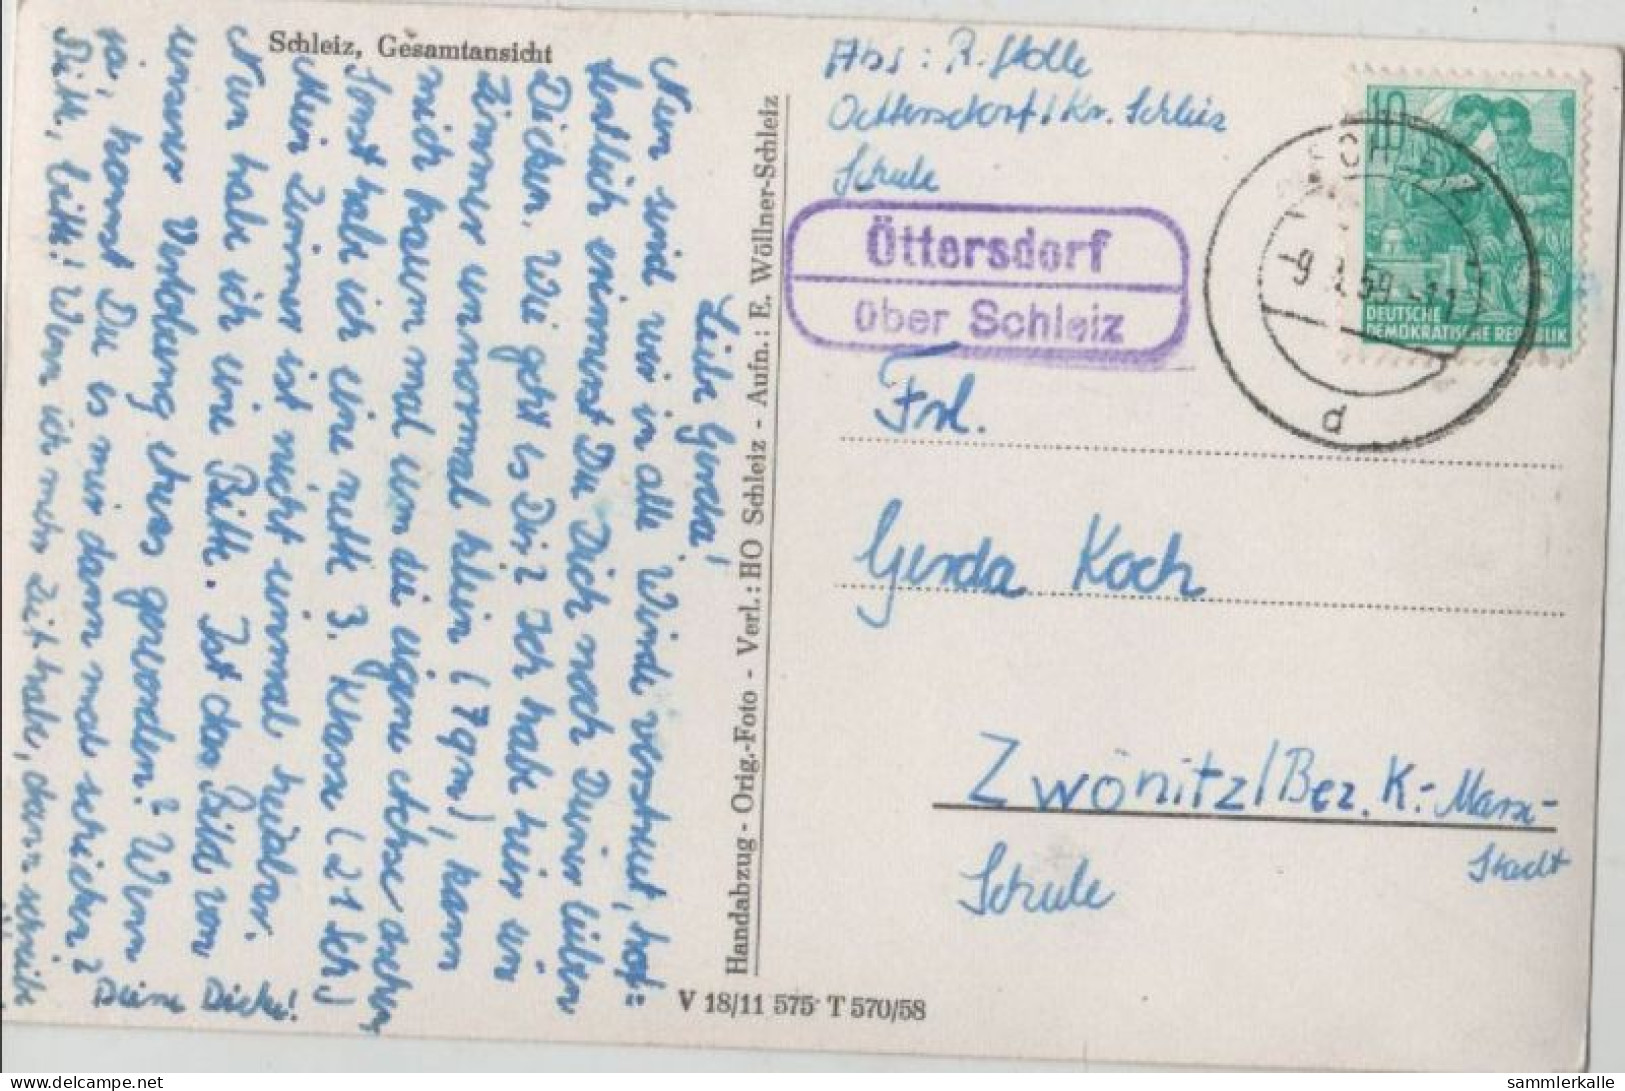 Schleiz, Gesamtansicht
Liebe Gerda!
Nun sind wir in alle Winde verstreut, hof=
fentlich nimmst Du Dich noch Deiner lieben
Dicken. Wie geht es Dir? Ich habe hier ein
Zimmer unnormal klein (7qm), kann
mich kaum mal um die eigene Achse drehen
Sonst habe ich eine nette 3. Klasse (21 Sch)
Mein Zimmer ist nicht einmal heizbar.
Nun habe ich eine Bitte. Ist das Bild von
unserer Verlobung etwas geworden? Wenn
ja, kannst Du es mir dann mal schicken?
Bitte, bitte! Wenn ich mehr Zeit habe, dann schreibe
Deine Dicke!
Handabzug - Orig.-Foto - Verl.: HO Schleiz - Aufn.: E. Wöllner-Schleiz
V 18/11 575 T 570/58
Abs: R. Stolle
Oettersdorf/Kr. Schleiz
Schule
Öttersdorf
über Schleiz
SCHLEIZ
-9. 59-11
d
10
DEUTSCHE
DEMOKRATISCHE REPUBLIK
Frl.
Gerda Koch
Zwönitz/Bez. K.-Marx-
Stadt
Schule
© sammlerkalle
www.delcampe.net